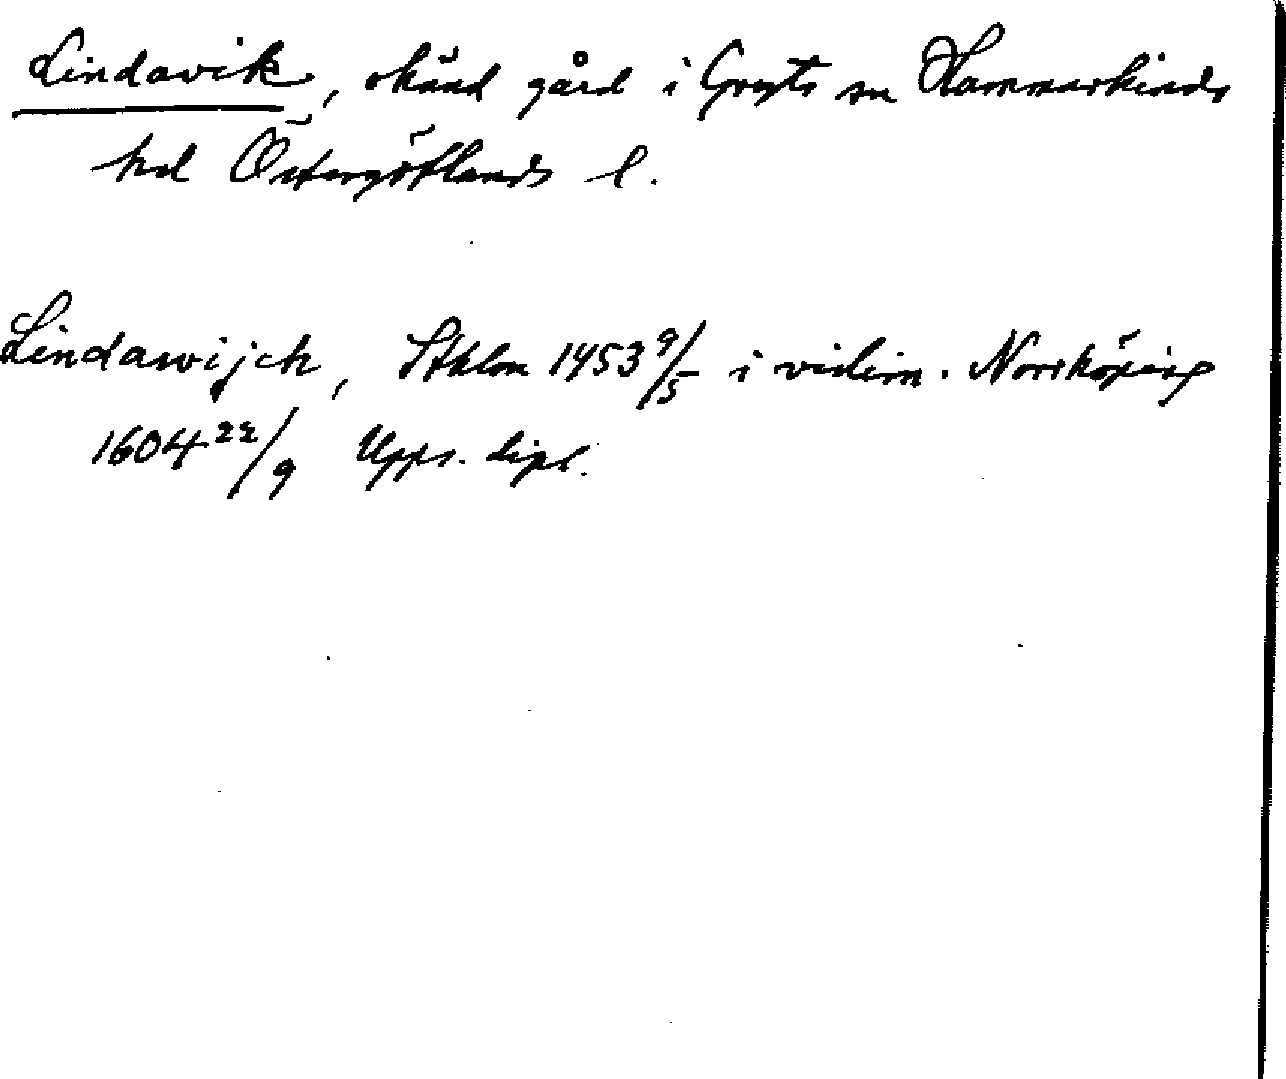 Lindavik, okänd gård i Gryts sn Hammarkinds
hd Östergötlands l.
Lindawijch, Sthlm 1453 9/5 i vidim. Norrköping
1604 22/9 Upps. dipl.